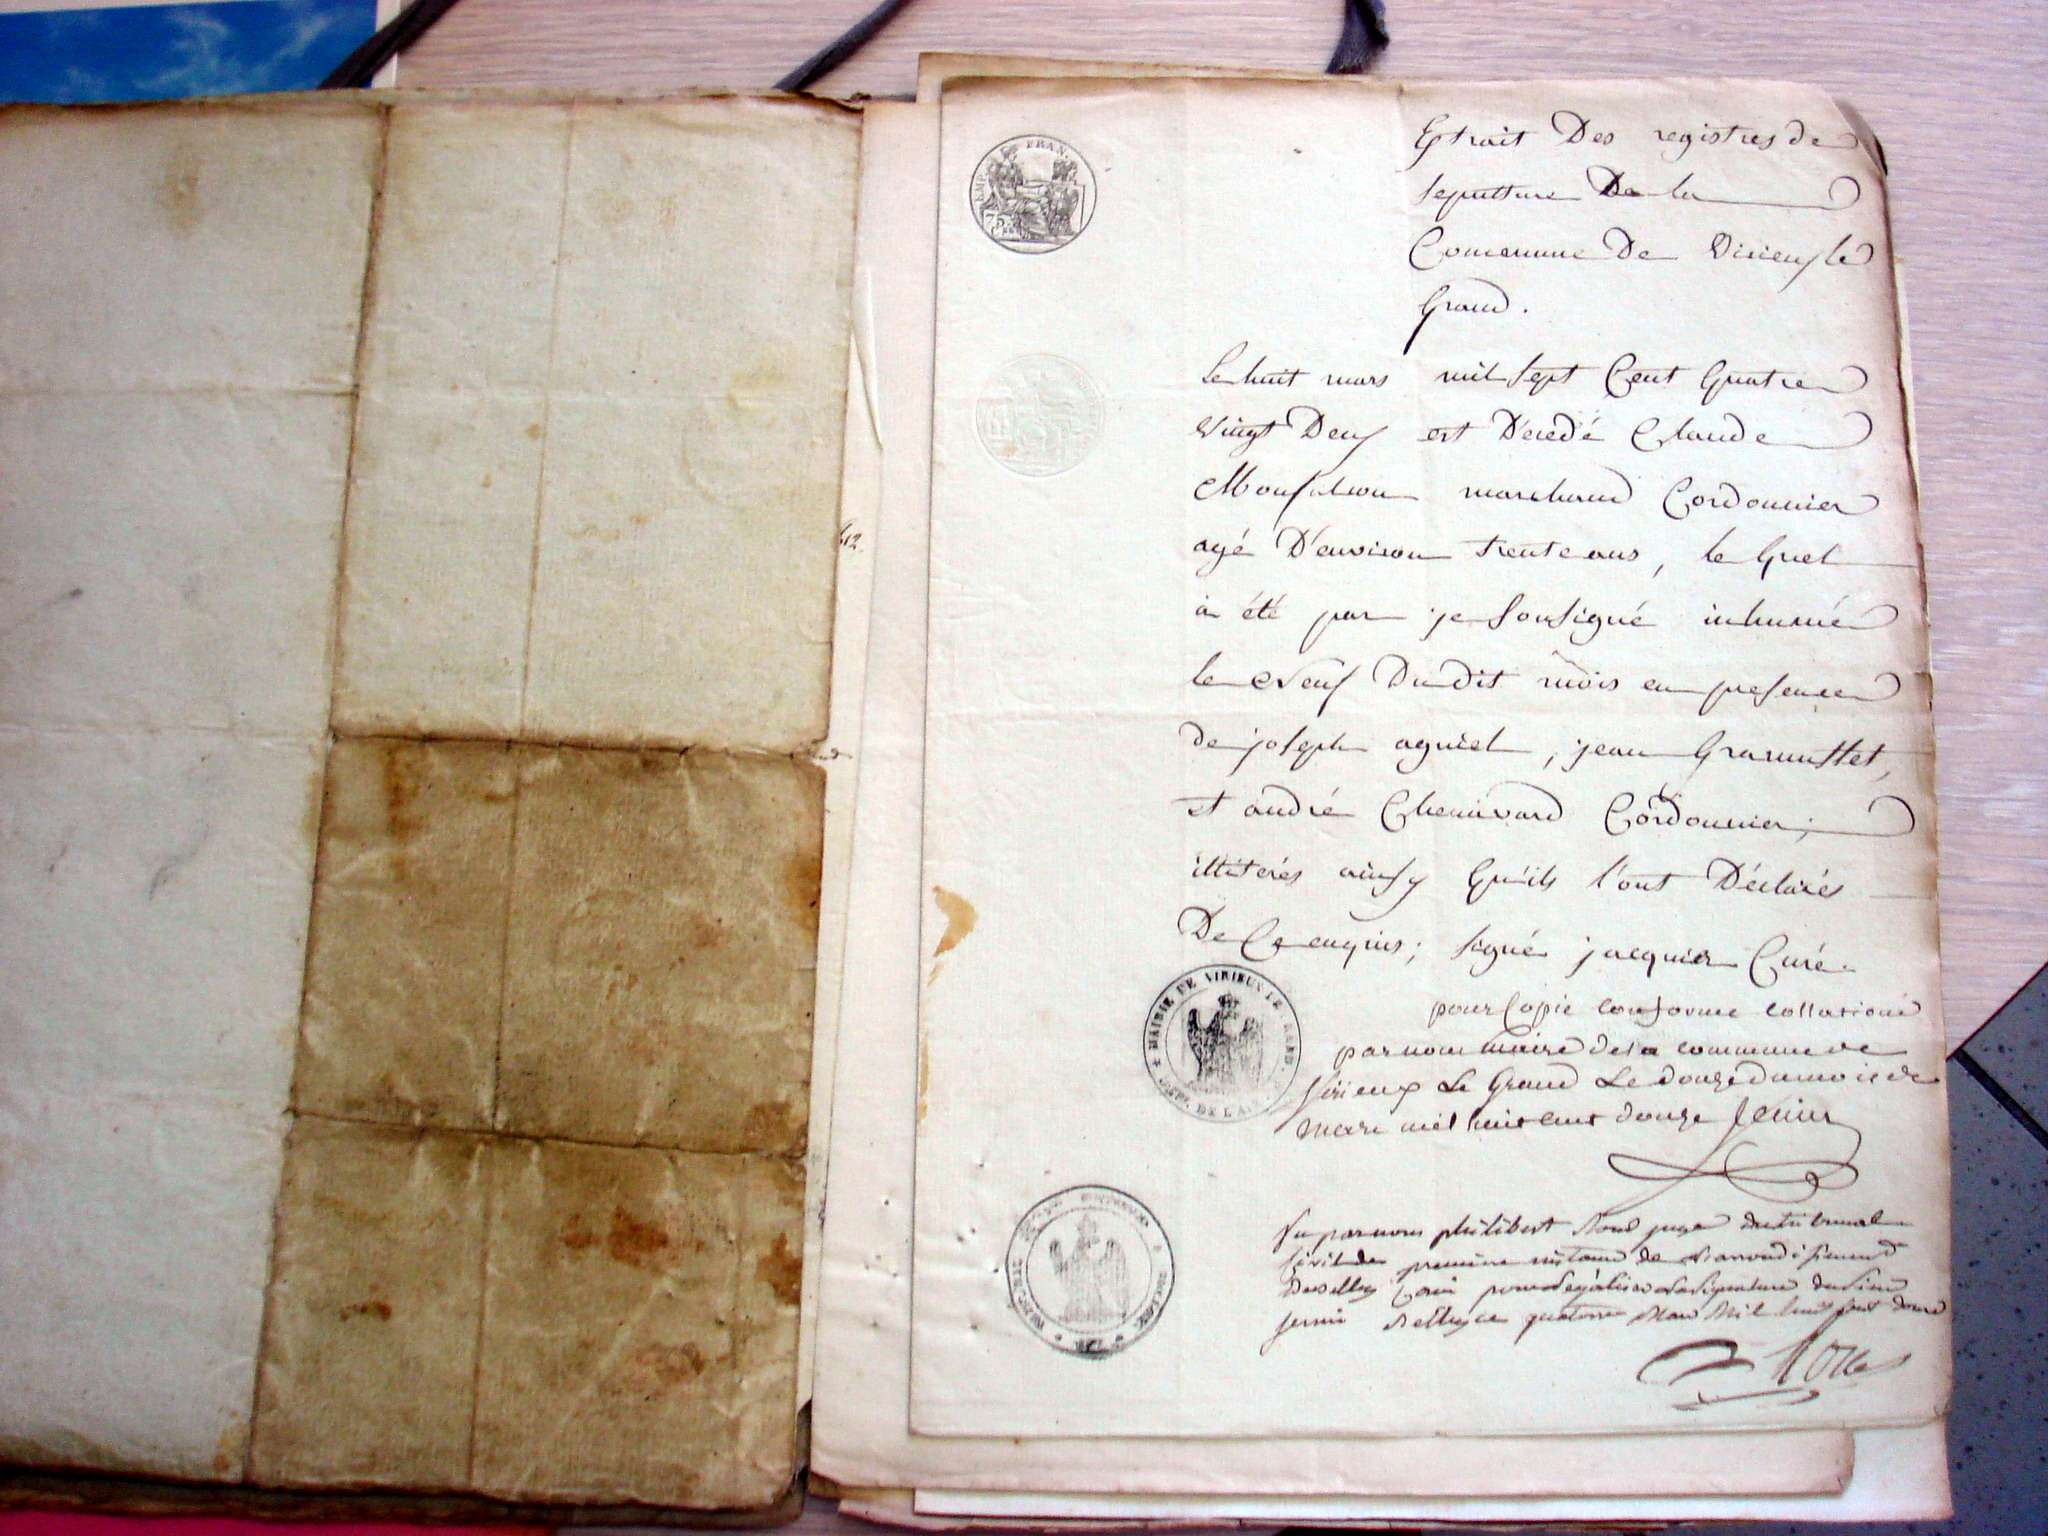 EMP. FRAN.
75
Extrait Des registres de
sepulture De la
Commune De Virieux le
Grand.
Le huit mars mil sept Cent Quatre
Vingt Deux est Décedé Claude
marchand Cordonnier
agé D'environ trente ans, le Quel
à été par je soussigné inhumé
le Neuf Dudit mois en presence
de joseph aguiet, jean
et andré Chenivard Cordonnier;
illiterés ainsy Qu'ils l'ont Déclarés
De Ce enquis; signé jacquier Curé.
MAIRIE DE VIRIEUX LE GRAND DE L'AIN
pour Copie conforme collationé
par nous maire de la commune de
Virieux Le Grand Le douze du mois de
mars mil huit cent douze Jenin
Vu par nous philibert juge du tribunal
Civil de premiere instance de l'arrondissement
De Belley pour legaliser la signature du sieur
jenin à Belley ce quatorze Mars Mil huit Cent douze